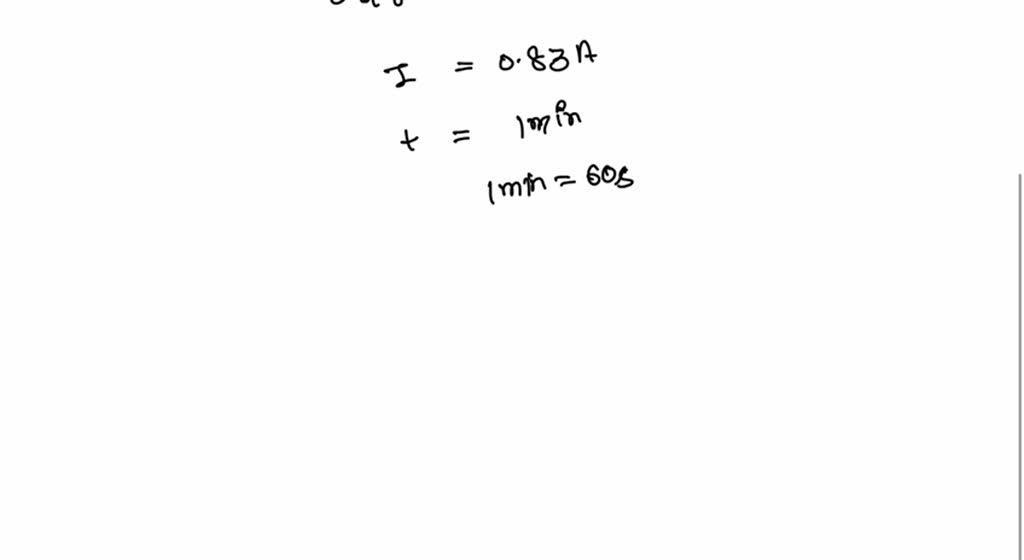 I = 0.83A
t = 1min
1min = 60s